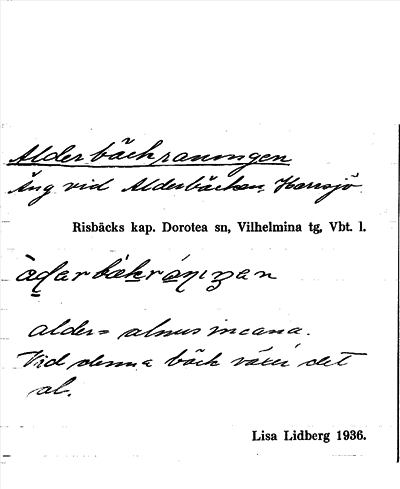 Alderbäckraningen
Äng vid Alderbäcken, Harrsjö
Risbäcks kap. Dorotea sn, Vilhelmina tg, Vbt. l.
alder = alnus incana.
Vid denna bäck växer det
al.
Lisa Lidberg 1936.